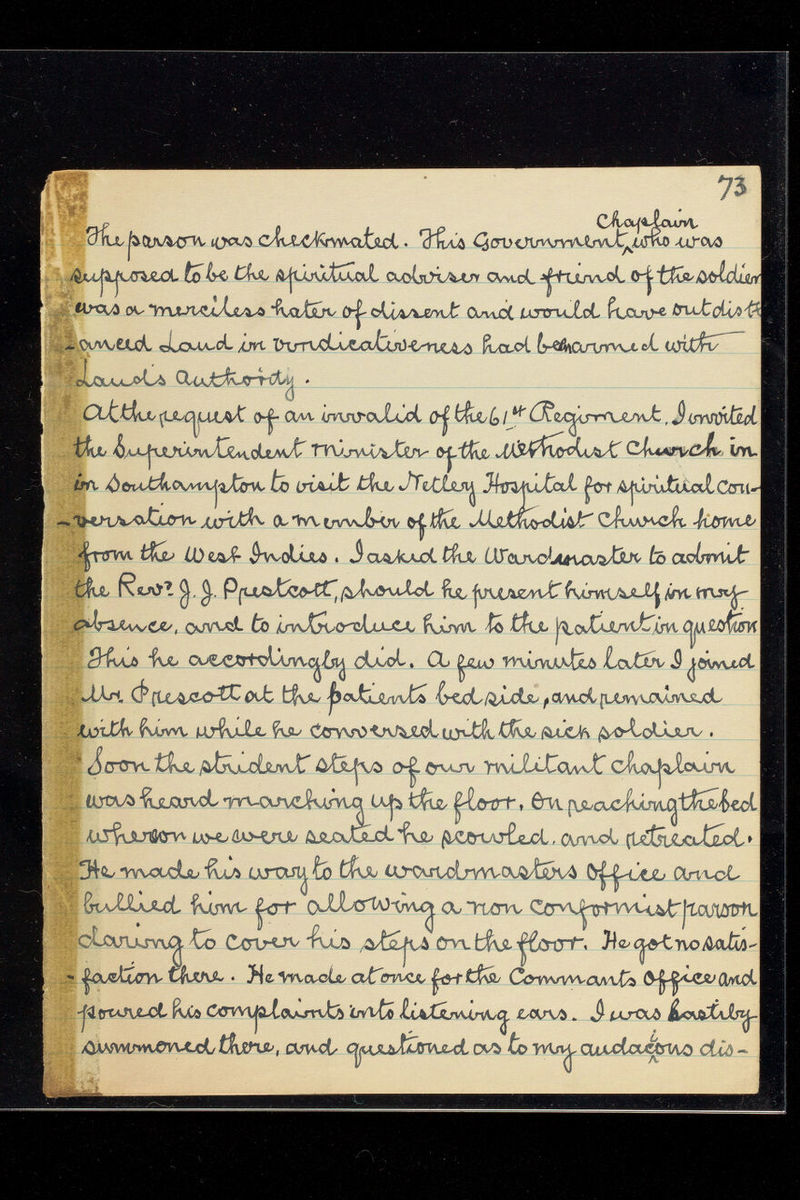 73
Chaplain
The parson was checkmated. This Government ^ who was
supposed to be the spiritual adviser and friend of the soldier
was a merciless hater of dissent and would have outdist
-anced Laud in vindicativeness had he armed with
Laud's Authority.
At the request of an invalid of the 61st Regiment, I invited
the Superintendent Minister of the Methodist Church in
in Southampton to visit the Netley Hospital for spiritual con-
-versation with a member of the Methodist Church home
from the West Indies. I asked the Wardmaster to admit
the Revd J. J. Prestcott, should he present himself in my
absence, and to introduce him to the patient in question
This he accordingly did. A few minutes later I joined
Mr. Prescott at the patients bed side, and remained
with him while he conversed with the sick soldier.
Soon the strident steps of our militant chaplain
was heard marching up the floor. On reaching the bed
whereon we were seated he scowled, and retreated.
He made his way to the wardmasters office and
bullied him for allowing a non conformist parson
daring to cover his steps on the floor. He got no satis-
-faction there. He made at once for the Commants Office and
poured his complaints into listening ears. I was hastily
summoned there, and questioned as to my audacious dis-